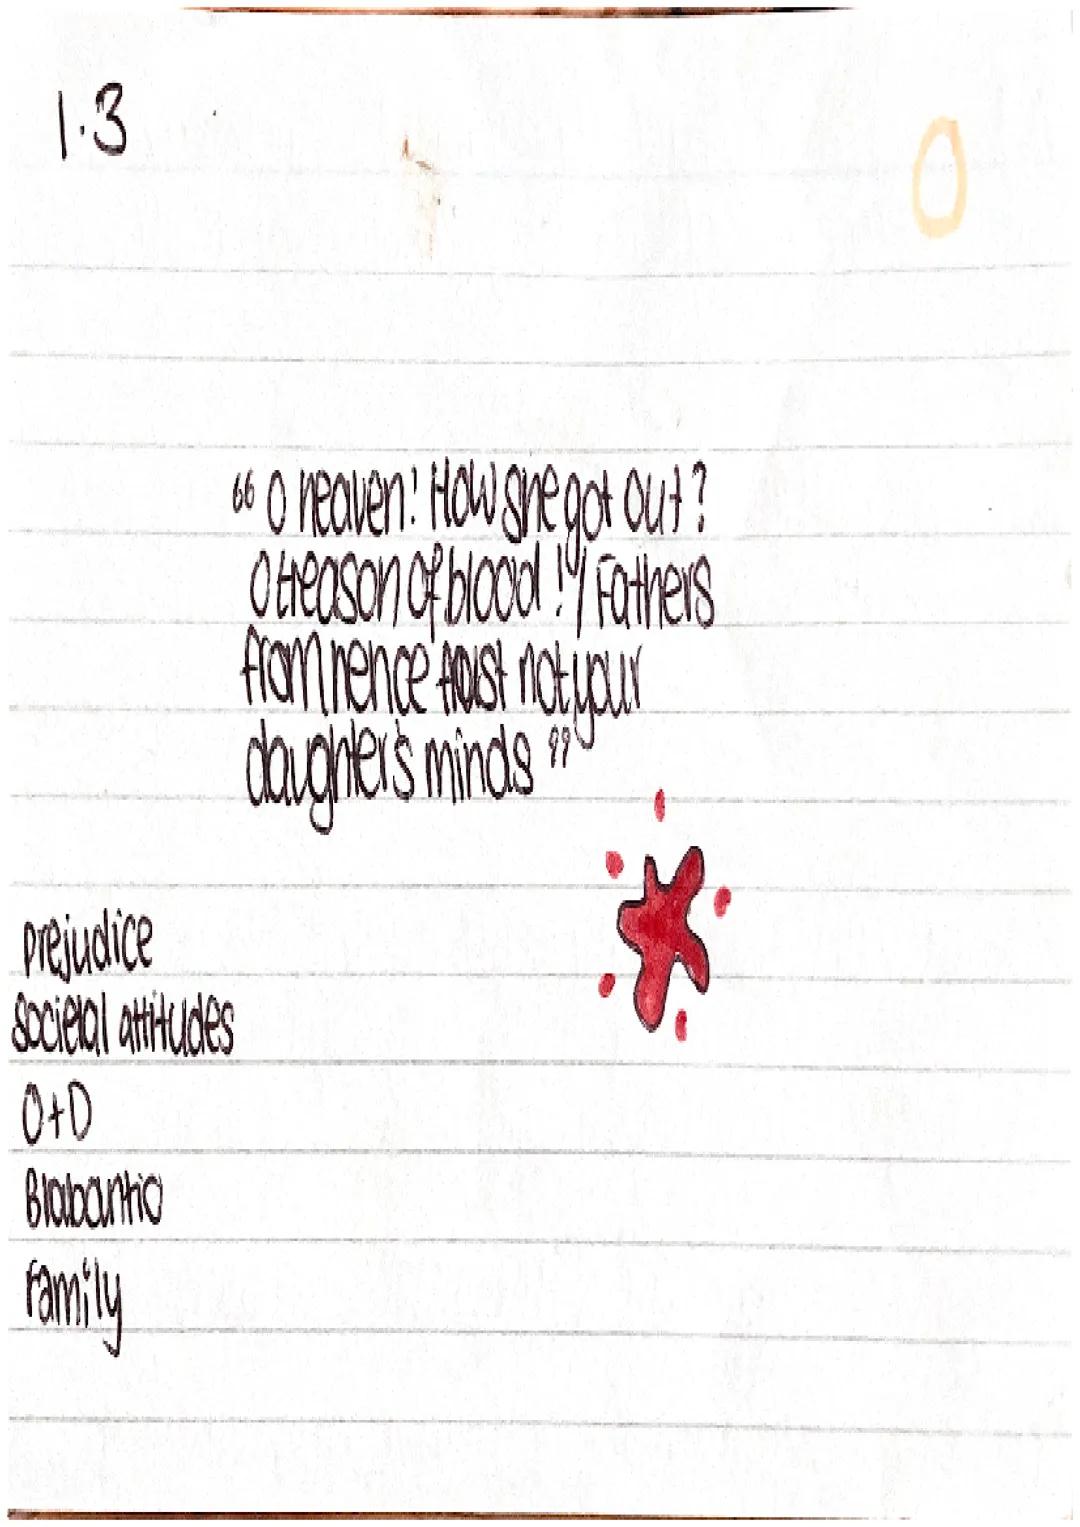 1.3
O
“ O heaven! How she got out?
O treason of blood! / Fathers
from hence trust not your
daughter's minds ”
prejudice
societal attitudes
O+D
Brabantio
family